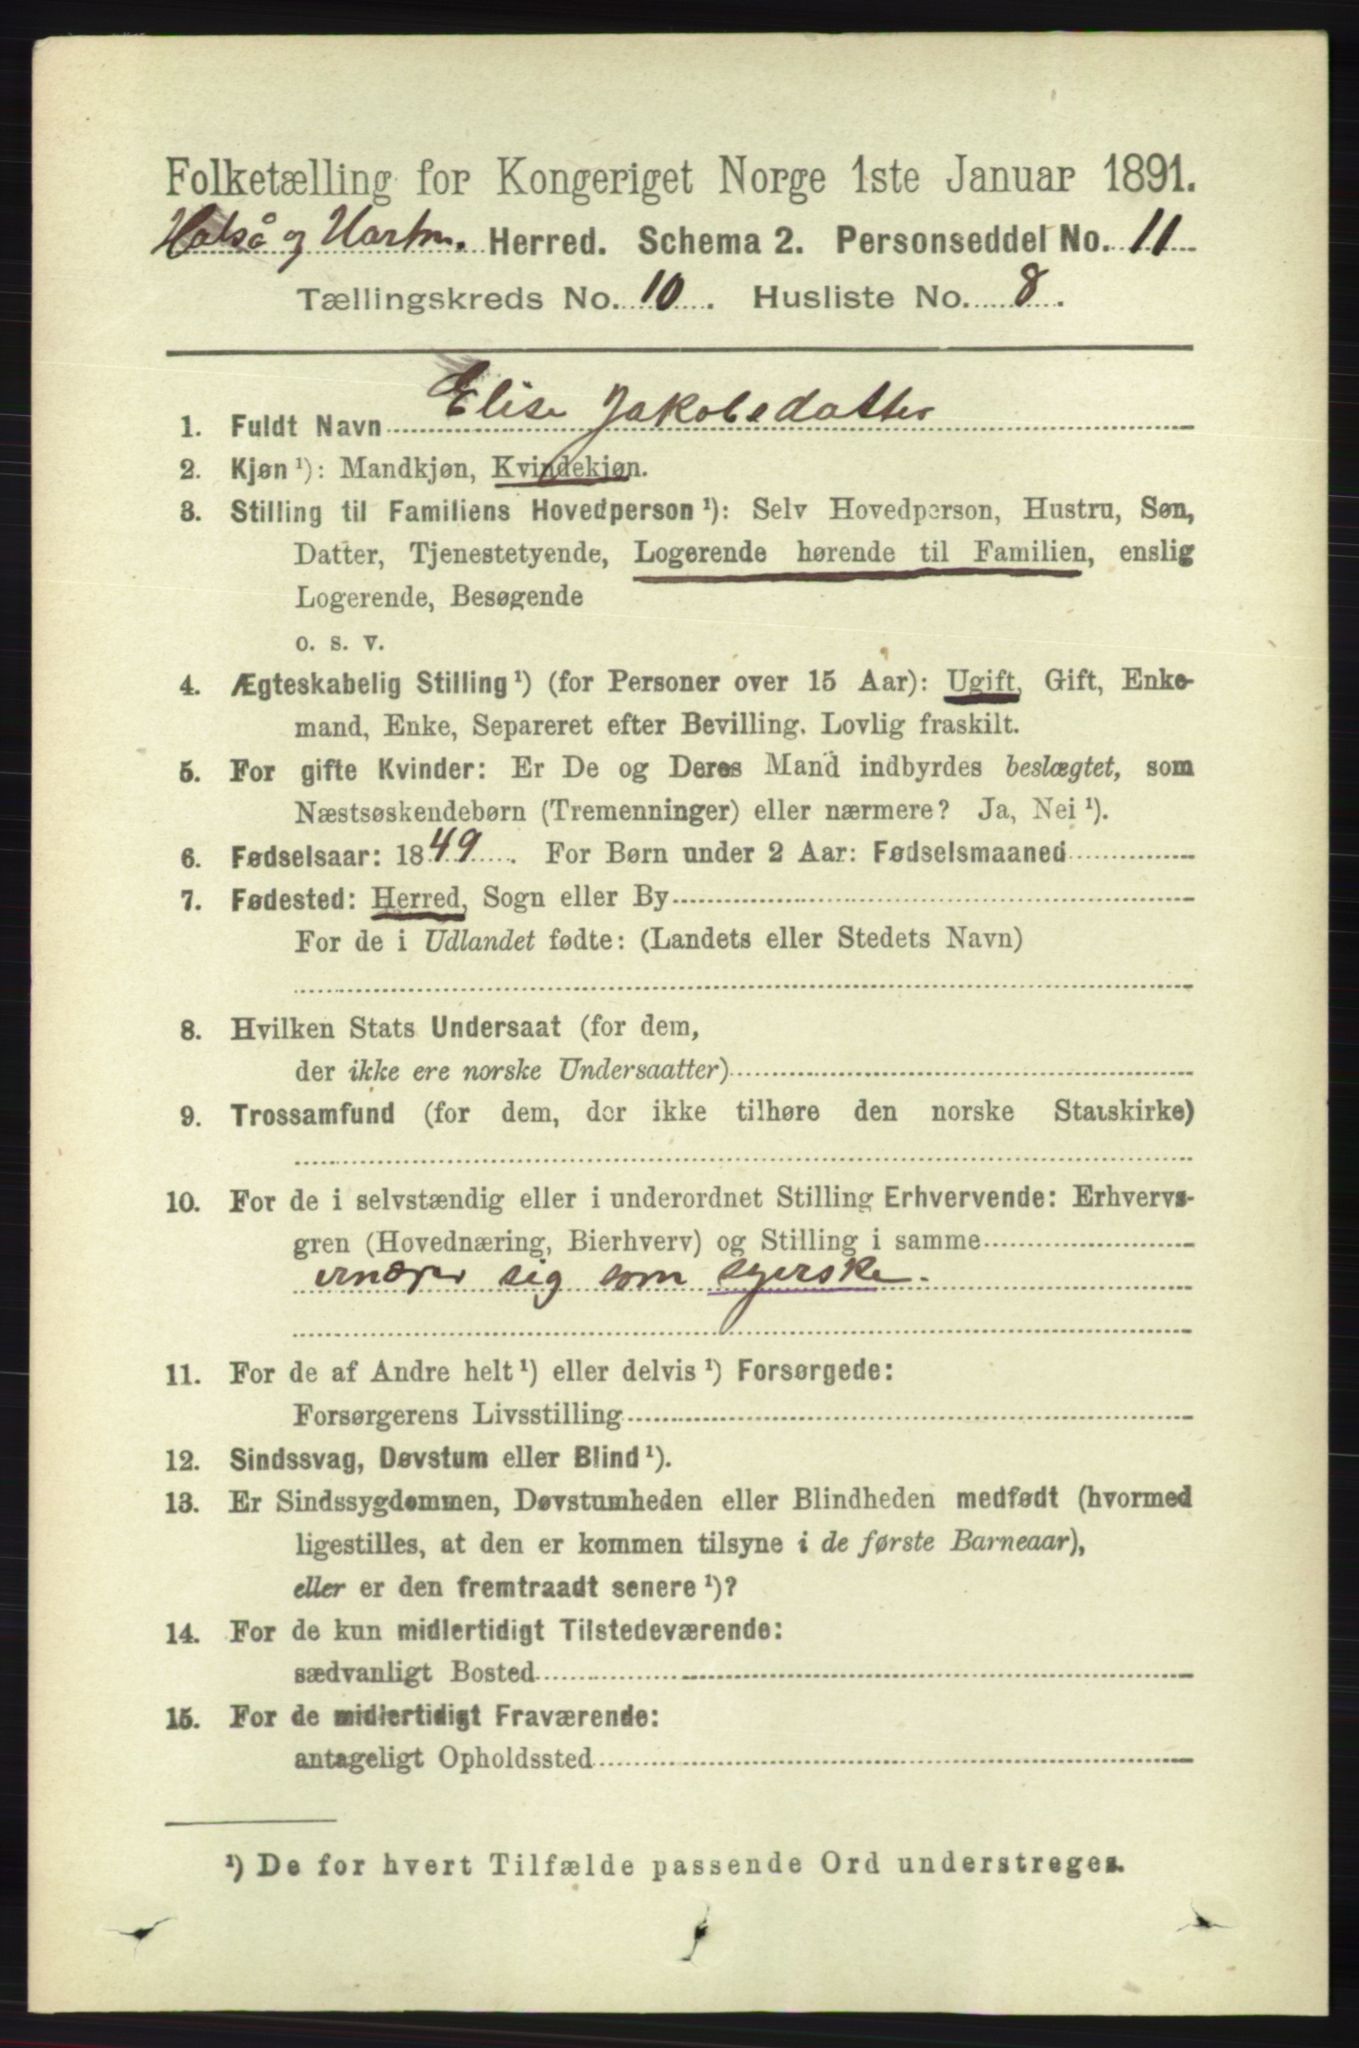 Folketælling for Kongeriget Norge 1ste Januar 1891.
Halså og Hartm. Herred. Schema 2. Personseddel No. 11
Tællingskreds No. 10. Husliste No. 8.
1. Fuldt Navn Elise Jakobsdatter
2. Kjøn ¹): Mandkjøn, Kvindekjøn.
3. Stilling til Familiens Hovedperson ¹): Selv Hovedperson, Hustru, Søn,
Datter, Tjenestetyende, Logerende hørende til Familien, enslig
Logerende, Besøgende
o. s. v.
4. Ægteskabelig Stilling ¹) (for Personer over 15 Aar): Ugift, Gift, Enke-
mand, Enke, Separeret efter Bevilling. Lovlig fraskilt.
5. For gifte Kvinder: Er De og Deres Mand indbyrdes beslægtet, som
Næstsøskendebørn (Tremenninger) eller nærmere? Ja, Nei ¹).
6. Fødselsaar: 1849. For Børn under 2 Aar: Fødselsmaaned
7. Fødested: Herred, Sogn eller By
For de i Udlandet fødte: (Landets eller Stedets Navn)
8. Hvilken Stats Undersaat (for dem,
der ikke ere norske Undersaatter)
9. Trossamfund (for dem, der ikke tilhøre den norske Statskirke)
10. For de i selvstændig eller i underordnet Stilling Erhvervende: Erhvervs-
gren (Hovednæring, Bierhverv) og Stilling i samme
ernærer sig som syerske.
11. For de af Andre helt ¹) eller delvis ¹) Forsørgede:
Forsørgerens Livsstilling
12. Sindssvag, Døvstum eller Blind ¹).
13. Er Sindssygdommen, Døvstumheden eller Blindheden medfødt (hvormed
ligestilles, at den er kommen tilsyne i de første Barneaar),
eller er den fremtraadt senere ¹)?
14. For de kun midlertidigt Tilstedeværende:
sædvanligt Bosted
15. For de midlertidigt Fraværende:
antageligt Opholdssted
¹) De for hvert Tilfælde passende Ord understreges.